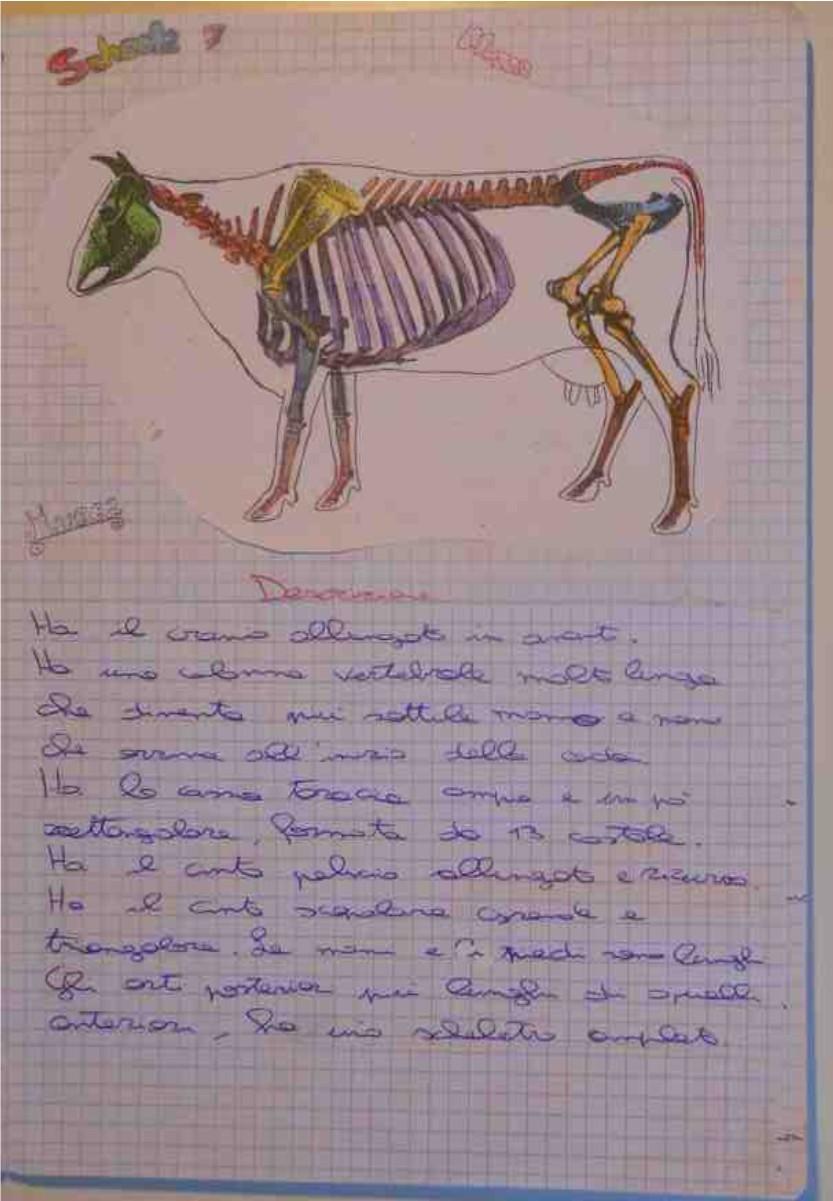 Scheda 7
Mucca
Descrizione
Ha il cranio allungato in avanti.
Ha una colonna vertebrale molto lunga
che diventa più sottile mano a mano
che arriva all'inizio della coda
Ha la cassa toracica ampia e un pò
rettangolare, formata da 13 costole.
Ha il cinto pelvico allungato e ricurvo.
Ha il cinto scapolare grande e
triangolare. Le mani e i piedi sono lunghi
Gli arti posteriori più lunghi di quelli
anteriori, ha uno scheletro